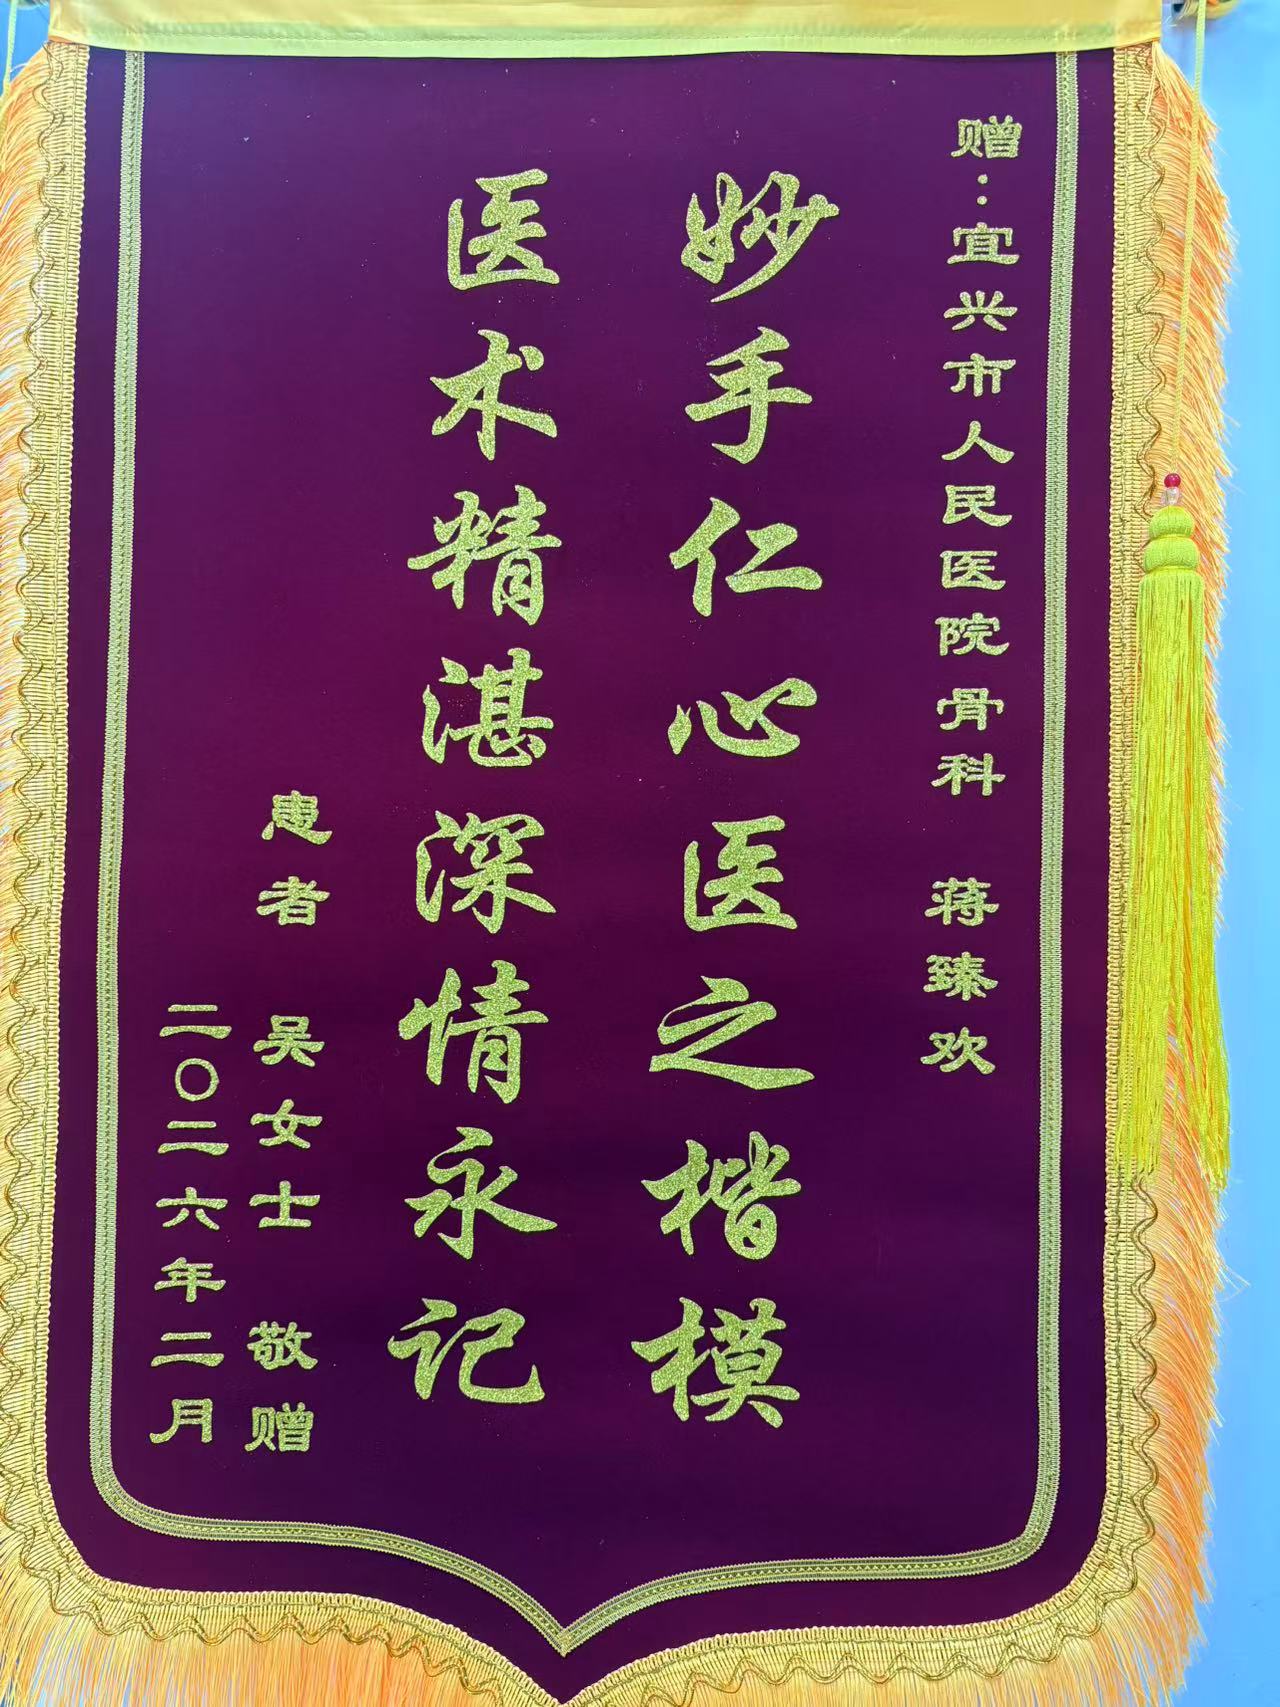 赠：宜兴市人民医院骨科 蒋臻欢
妙手仁心医之楷模
医术精湛深情永记
患者 吴女士 敬赠
二〇二六年二月